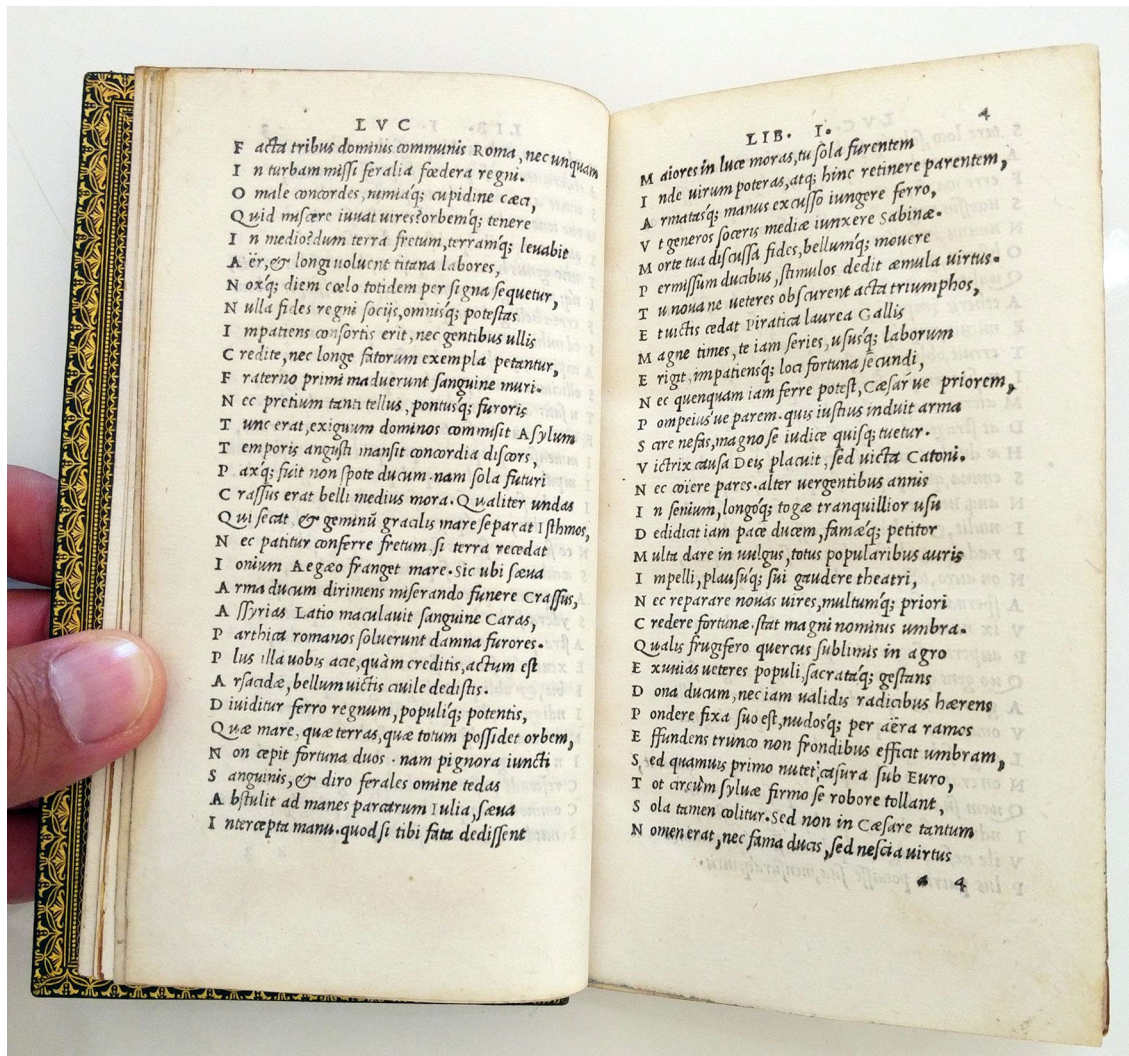 LVC
F acta tribus dominis communis Roma, nec unquam
I n turbam missi feralia fœdera regni.
O male concordes, nimiaq; cupidine cæci,
Q uid miscere iuuat uires? orbemq; tenere
I n medio? dum terra fretum, terramq; leuabit
A ër, & longi uoluent titana labores,
N oxq; diem cœlo totidem per signa sequetur,
N ulla fides regni socijs, omnisq; potestas
I mpatiens consortis erit, nec gentibus ullis
C redite, nec longe fatorum exempla petantur,
F raterno primi maduerunt sanguine muri.
N ec pretium tanti tellus, pontusq; furoris
T unc erat, exiguum dominos commisit Asylum
T emporis angusti mansit concordia discors,
P axq; fuit non spōte ducum. nam sola futuri
C rassus erat belli medius mora. Qualiter undas
Q ui secat & geminū gracilis mare separat Isthmos,
N ec patitur conferre fretum, si terra recedat
I onium Aegæo franget mare. Sic ubi sæua
A rma ducum dirimens miserando funere Crassus,
A ssyrias Latio maculauit sanguine Caras,
P arthica romanos soluerunt damna furores.
P lus illa uobis acie, quàm creditis, actum est
A rsacidæ, bellum uictis ciuile dedistis.
D iuiditur ferro regnum, populiq; potentis,
Q uæ mare, quæ terras, quæ totum possidet orbem,
N on cepit fortuna duos. nam pignora iuncti
S anguinis, & diro ferales omine tedas
A bstulit ad manes parcarum Iulia, sæua
I ntercepta manu. quod si tibi fata dedissent
LIB. I. 4
M aiores in luce moras, tu sola furentem
I nde uirum poteras, atq; hinc retinere parentem,
A rmatasq; manus excusso iungere ferro,
V t generos soceris mediæ iunxere Sabinæ.
M orte tua discussa fides, bellumq; mouere
P ermissum ducibus, stimulos dedit æmula uirtus.
T u noua ne ueteres obscurent acta triumphos,
E t uictis cedat Piratica laurea Gallis
M agne times, te iam series, ususq; laborum
E rigit, impatiensq; loci fortuna secundi,
N ec quenquam iam ferre potest, Cæsar ue priorem,
P ompeius ue parem. quis iustius induit arma
S cire nefas, magno se iudice quisq; tuetur.
V ictrix causa Deis placuit, sed uicta Catoni.
N ec coïere pares. alter uergentibus annis
I n senium, longoq; togæ tranquillior usu
D edidicit iam pace ducem, famæq; petitor
M ulta dare in uulgus, totus popularibus auris
I mpelli, plausuq; sui gaudere theatri,
N ec reparare nouas uires, multumq; priori
C redere fortunæ. stat magni nominis umbra.
Q ualis frugifero quercus sublimis in agro
E xuuias ueteres populi, sacrataq; gestans
D ona ducum, nec iam ualidis radicibus hærens
P ondere fixa suo est, nudosq; per aëra ramos
E ffundens trunco non frondibus efficit umbram,
S ed quamuis primo nutet, casura sub Euro,
T ot circùm syluæ firmo se robore tollant,
S ola tamen colitur. Sed non in Cæsare tantum
N omen erat, nec fama ducis, sed nescia uirtus
a 4